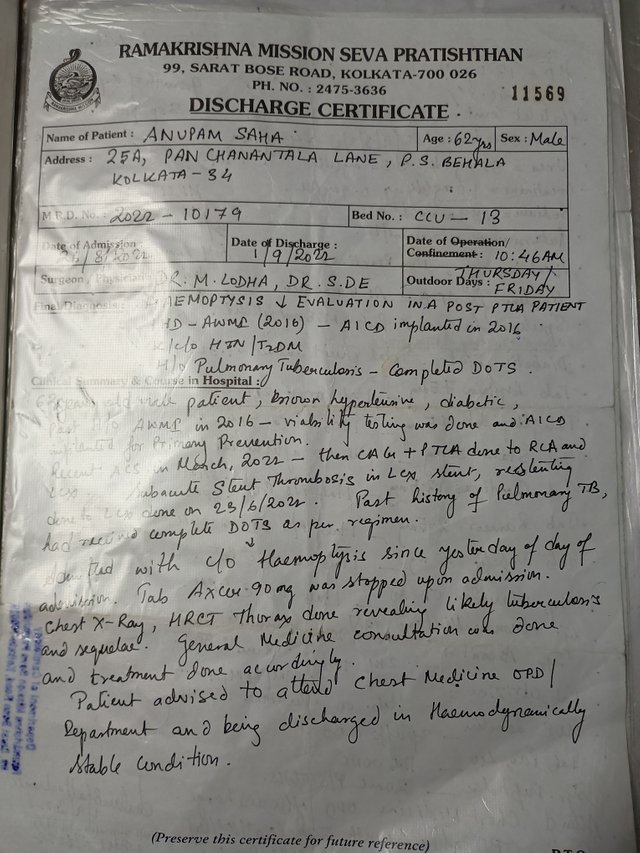 RAMAKRISHNA MISSION SEVA PRATISHTHAN
99, SARAT BOSE ROAD, KOLKATA-700 026
PH. NO. : 2475-3636
11569
DISCHARGE CERTIFICATE
Name of Patient : ANUPAM SAHA Age : 62yrs Sex : Male
Address : 25A, PANCHANANTALA LANE, P.S. BEHALA
KOLKATA-34
M.R.D. No. : 2022-10179 Bed No. : CCU-13
Date of Admission : /8/2022 Date of Discharge : 1/9/2022 Date of Operation/ Confinement : 10:46AM
Surgeon, Physician DR. M. LODHA, DR. S. DE Outdoor Days : THURSDAY/ FRIDAY
Final Diagnosis : HAEMOPTYSIS ↓ EVALUATION IN A POST PTCA PATIENT
IHD-AWMI (2016) - AICD implanted in 2016
K/C/O HTN/T2DM
H/O Pulmonary Tuberculosis - Completed DOTS.
Clinical Summary & Course in Hospital :
old male patient, known hypertensive, diabetic,
AWMI in 2016 - viability testing was done and AICD
implanted for Primary Prevention.
Recent ACS in March, 2022 - then CAG + PTCA done to RCA and
LCx Subacute Stent Thrombosis in LCx stent, restenting
done to LCx done on 23/6/2022. Past history of Pulmonary TB,
had received complete DOTS as per regimen.
admitted with c/o Haemoptysis since yesterday of day of
admission. Tab Axcer 90mg was stopped upon admission.
Chest X-Ray, HRCT Thorax done revealing likely tuberculosis
and sequelae. General Medicine consultation was done
and treatment done accordingly.
Patient advised to attend Chest Medicine OPD/
Department and being discharged in Haemodynamically
stable condition.
(Preserve this certificate for future reference)
P.T.O.